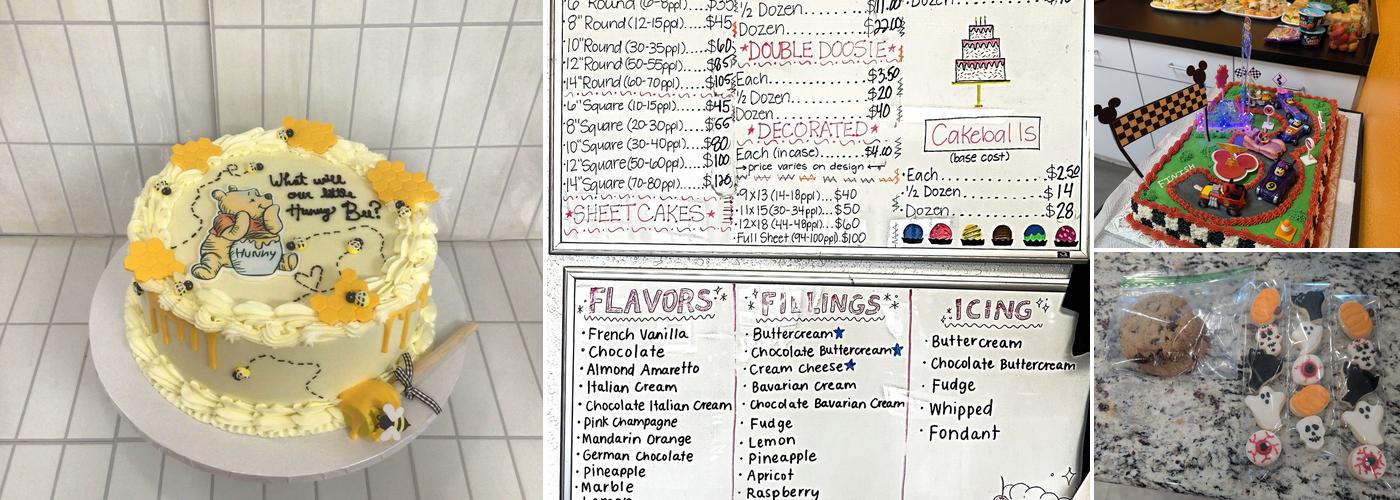 What will
our little
Hunny Bee?
HUNNY
6" Round (6-8ppl)....$35
8" Round (12-15ppl)....$45
10" Round (30-35ppl)....$60
12" Round (50-55ppl)....$85
14" Round (60-70ppl)....$105
6" Square (10-15ppl)....$45
8" Square (20-30ppl)....$66
10" Square (30-40ppl)....$80
12" Square (50-60ppl)....$100
14" Square (70-80ppl)....
★SHEET CAKES★
1/2 Dozen.............$11.00
Dozen...............$22.00
★DOUBLE DOOSIE★
Each................$3.50
1/2 Dozen.............$20
Dozen...............$40
★DECORATED★
Each (in case).......$4.00
price varies on design
•9x13 (14-18ppl)...$40
•11x15 (30-34ppl)...$50
•12x18 (44-48ppl)...$60
•Full Sheet (94-100ppl).$100
Cakeballs
(base cost)
•Each...............$2.50
•1/2 Dozen............$14
•Dozen..............$28
FLAVORS
• French Vanilla
• Chocolate
• Almond Amaretto
• Italian Cream
• Chocolate Italian Cream
• Pink Champagne
• Mandarin Orange
• German Chocolate
• Pineapple
• Marble
FILLINGS
• Buttercream★
• Chocolate Buttercream★
• Cream Cheese★
• Bavarian Cream
• Chocolate Bavarian Cream
• Fudge
• Lemon
• Pineapple
• Apricot
• Raspberry
ICING
• Buttercream
• Chocolate Buttercream
• Fudge
• Whipped
• Fondant
FINISH